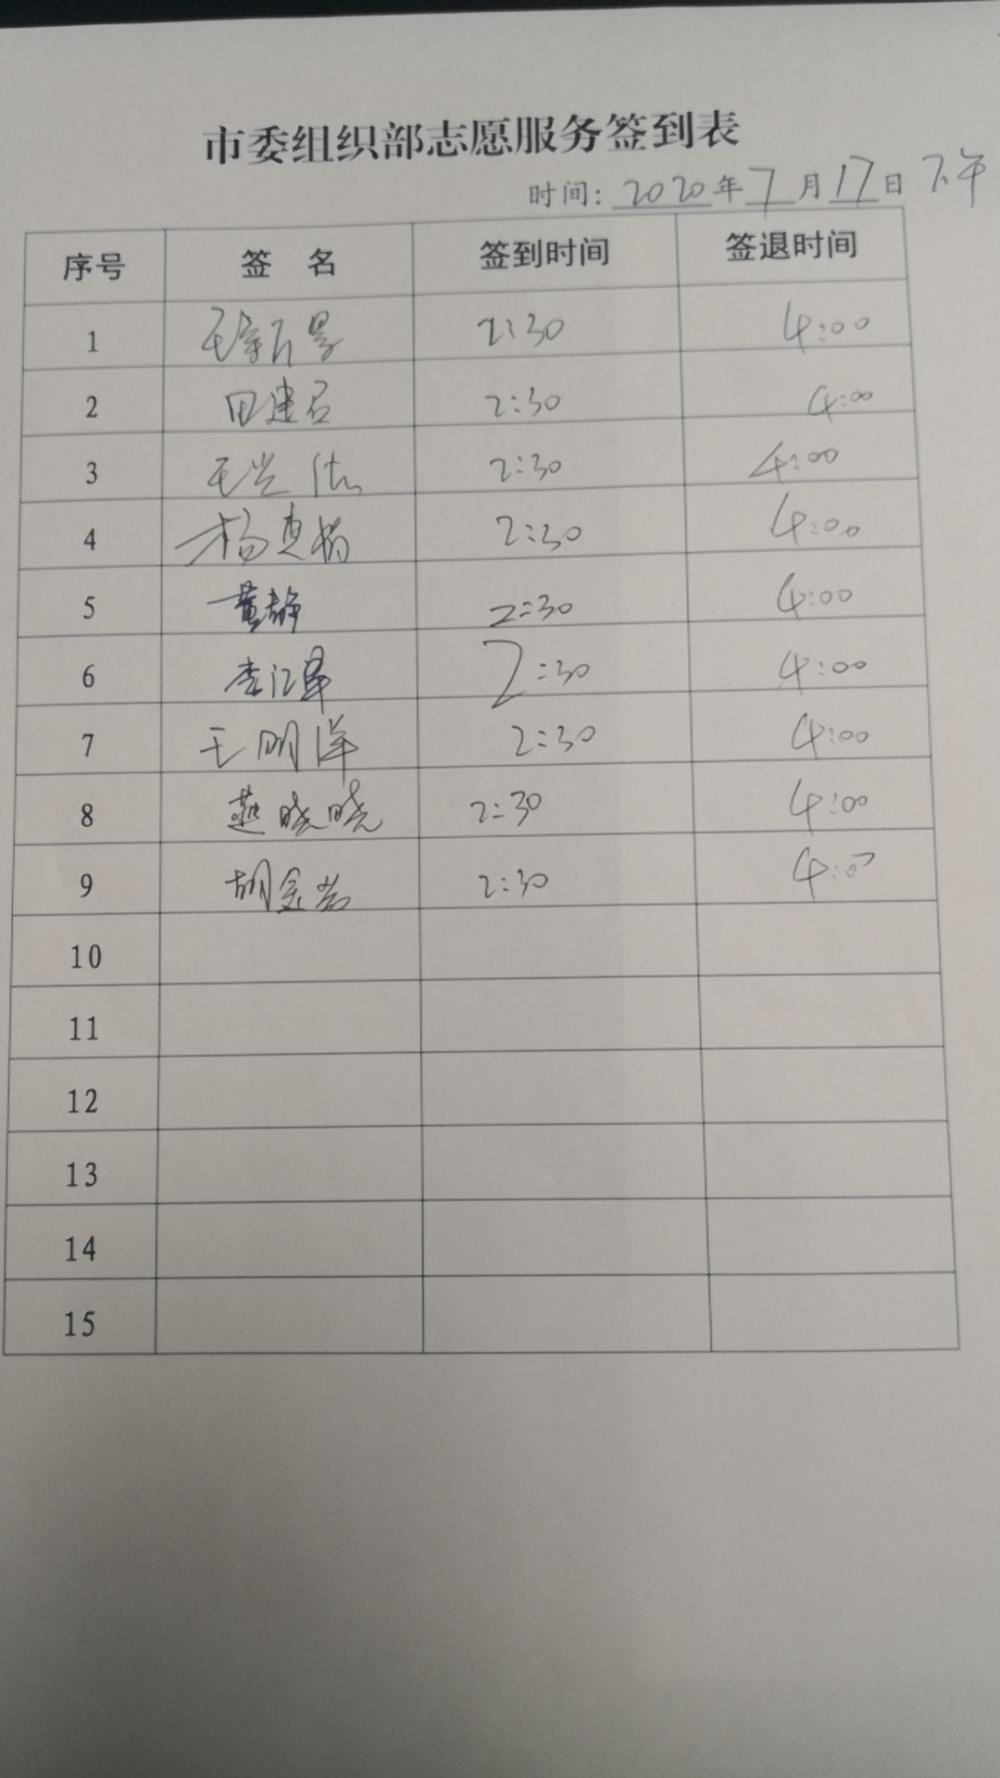 市委组织部志愿服务签到表
时间: 2020年7月17日 下午
序号 签 名 签到时间 签退时间
1 2:30 4:00
2 田建君 2:30 4:00
3 2:30 4:00
4 2:30 4:00
5 董静 2:30 4:00
6 李江军 2:30 4:00
7 王明洋 2:30 4:00
8 燕晓晓 2:30 4:00
9 胡金岩 2:30 4:00
10
11
12
13
14
15